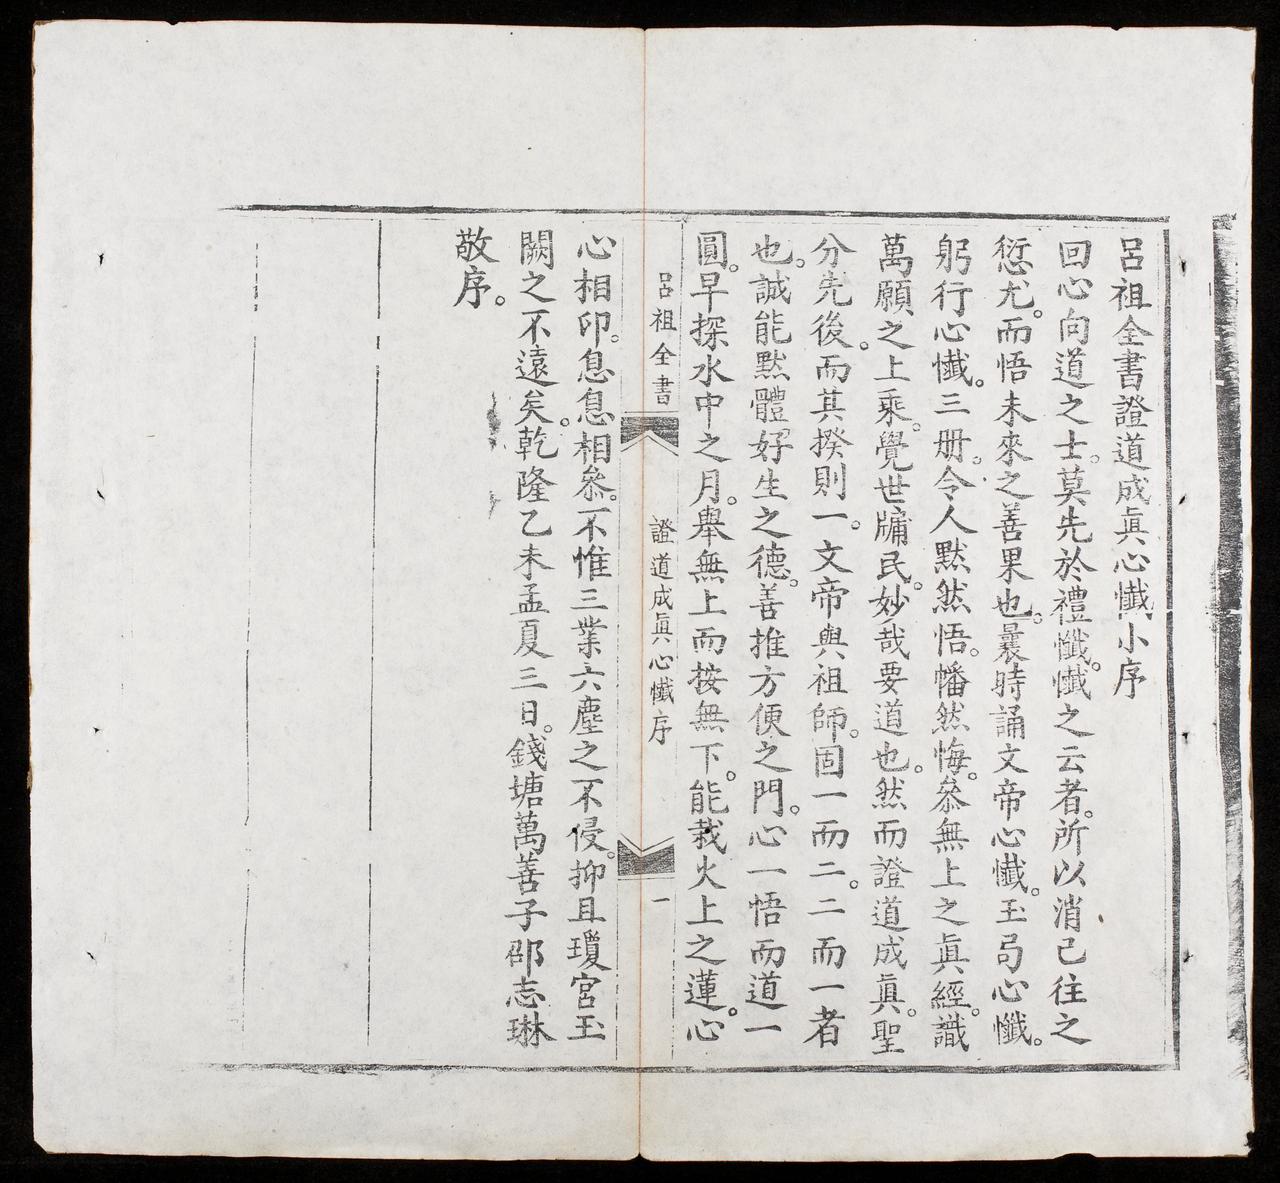 呂祖全書證道成眞心懺小序
回心向道之士。莫先於禮懺。懺之云者。所以消已往之
愆尤。而悟未來之善果也。曩時誦文帝心懺。玉局心懺。
躬行心懺。三册。令人默然悟。幡然悔。叅無上之眞經。識
萬願之上乘。覺世牖民。妙哉要道也。然而證道成眞。聖
分先後。而其揆則一。文帝與祖師。固一而二。二而一者
也。誠能默體好生之德。善推方便之門。心一悟而道一
圓。早探水中之月。舉無上而按無下。能栽火上之蓮。心
呂祖全書
證道成眞心懺序
一
心相印。息息相叅。不惟三業六塵之不侵。抑且瓊宮玉
闕之不遠矣。乾隆乙未孟夏三日。錢塘萬善子邵志琳
敬序。